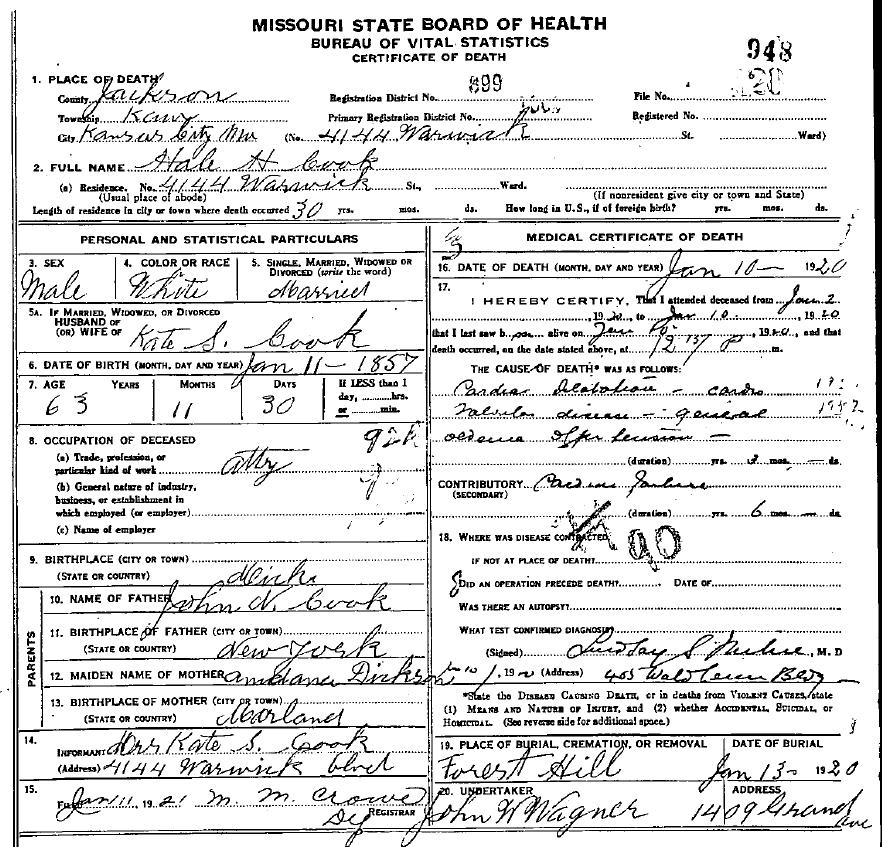 MISSOURI STATE BOARD OF HEALTH
BUREAU OF VITAL STATISTICS
CERTIFICATE OF DEATH
948
1. PLACE OF DEATH
County Jackson Registration District No. 399 File No.
Township Kaw Primary Registration District No. Registered No.
City Kansas City Mo (No. 4144 Warwick St. Ward)
2. FULL NAME Hale H Cook
(a) Residence. No. 4144 Warwick St., Ward.
(Usual place of abode) (If nonresident give city or town and State)
Length of residence in city or town where death occurred 30 yrs. mos. ds. How long in U.S., if of foreign birth? yrs. mos. ds.
PERSONAL AND STATISTICAL PARTICULARS
3. SEX
Male
4. COLOR OR RACE
White
5. SINGLE, MARRIED, WIDOWED OR
DIVORCED (write the word)
Married
5A. IF MARRIED, WIDOWED, OR DIVORCED
HUSBAND OF
(OR) WIFE OF Kate S. Cook
6. DATE OF BIRTH (MONTH, DAY AND YEAR) Jan 11 - 1857
7. AGE YEARS MONTHS DAYS If LESS than 1
day, hrs.
or min.
63 11 30
8. OCCUPATION OF DECEASED
(a) Trade, profession, or
particular kind of work atty
(b) General nature of industry,
business, or establishment in
which employed (or employer)
(c) Name of employer
9. BIRTHPLACE (CITY OR TOWN)
(STATE OR COUNTRY) Mich
PARENTS
10. NAME OF FATHER John N. Cook
11. BIRTHPLACE OF FATHER (CITY OR TOWN)
(STATE OR COUNTRY) New York
12. MAIDEN NAME OF MOTHER Dickson
13. BIRTHPLACE OF MOTHER (CITY OR TOWN)
(STATE OR COUNTRY) Marland
14.
INFORMANT Mrs Kate S. Cook
(Address) 4144 Warwick blvd
15.
Jan 11, 1921 M. M. Crowe
Dep REGISTRAR
MEDICAL CERTIFICATE OF DEATH
16. DATE OF DEATH (MONTH, DAY AND YEAR) Jan 10 - 1920
17.
I HEREBY CERTIFY, That I attended deceased from Jan 2
, 19 to Jan 10, 1920
that I last saw h alive on Jan, 1920, and that
death occurred, on the date stated above, at m.
THE CAUSE OF DEATH* WAS AS FOLLOWS:
Cardiac Dilatation - cardio
Valvular disease - general
oedema -
(duration) yrs. mos. ds.
CONTRIBUTORY Cardiac failure
(SECONDARY)
(duration) yrs. 6 mos. ds.
18. WHERE WAS DISEASE CONTRACTED
IF NOT AT PLACE OF DEATH?
90
DID AN OPERATION PRECEDE DEATH? DATE OF
WAS THERE AN AUTOPSY?
WHAT TEST CONFIRMED DIAGNOSIS?
(Signed) Lindsay S, M. D
, 19 (Address) 405 Waldheim Bldg
*State the DISEASE CAUSING DEATH, or in deaths from VIOLENT CAUSES, state
(1) MEANS AND NATURE OF INJURY, and (2) whether ACCIDENTAL, SUICIDAL, or
HOMICIDAL. (See reverse side for additional space.)
19. PLACE OF BURIAL, CREMATION, OR REMOVAL DATE OF BURIAL
Forest Hill Jan 13 - 1920
20. UNDERTAKER ADDRESS
John W Wagner 1409 Grand Ave